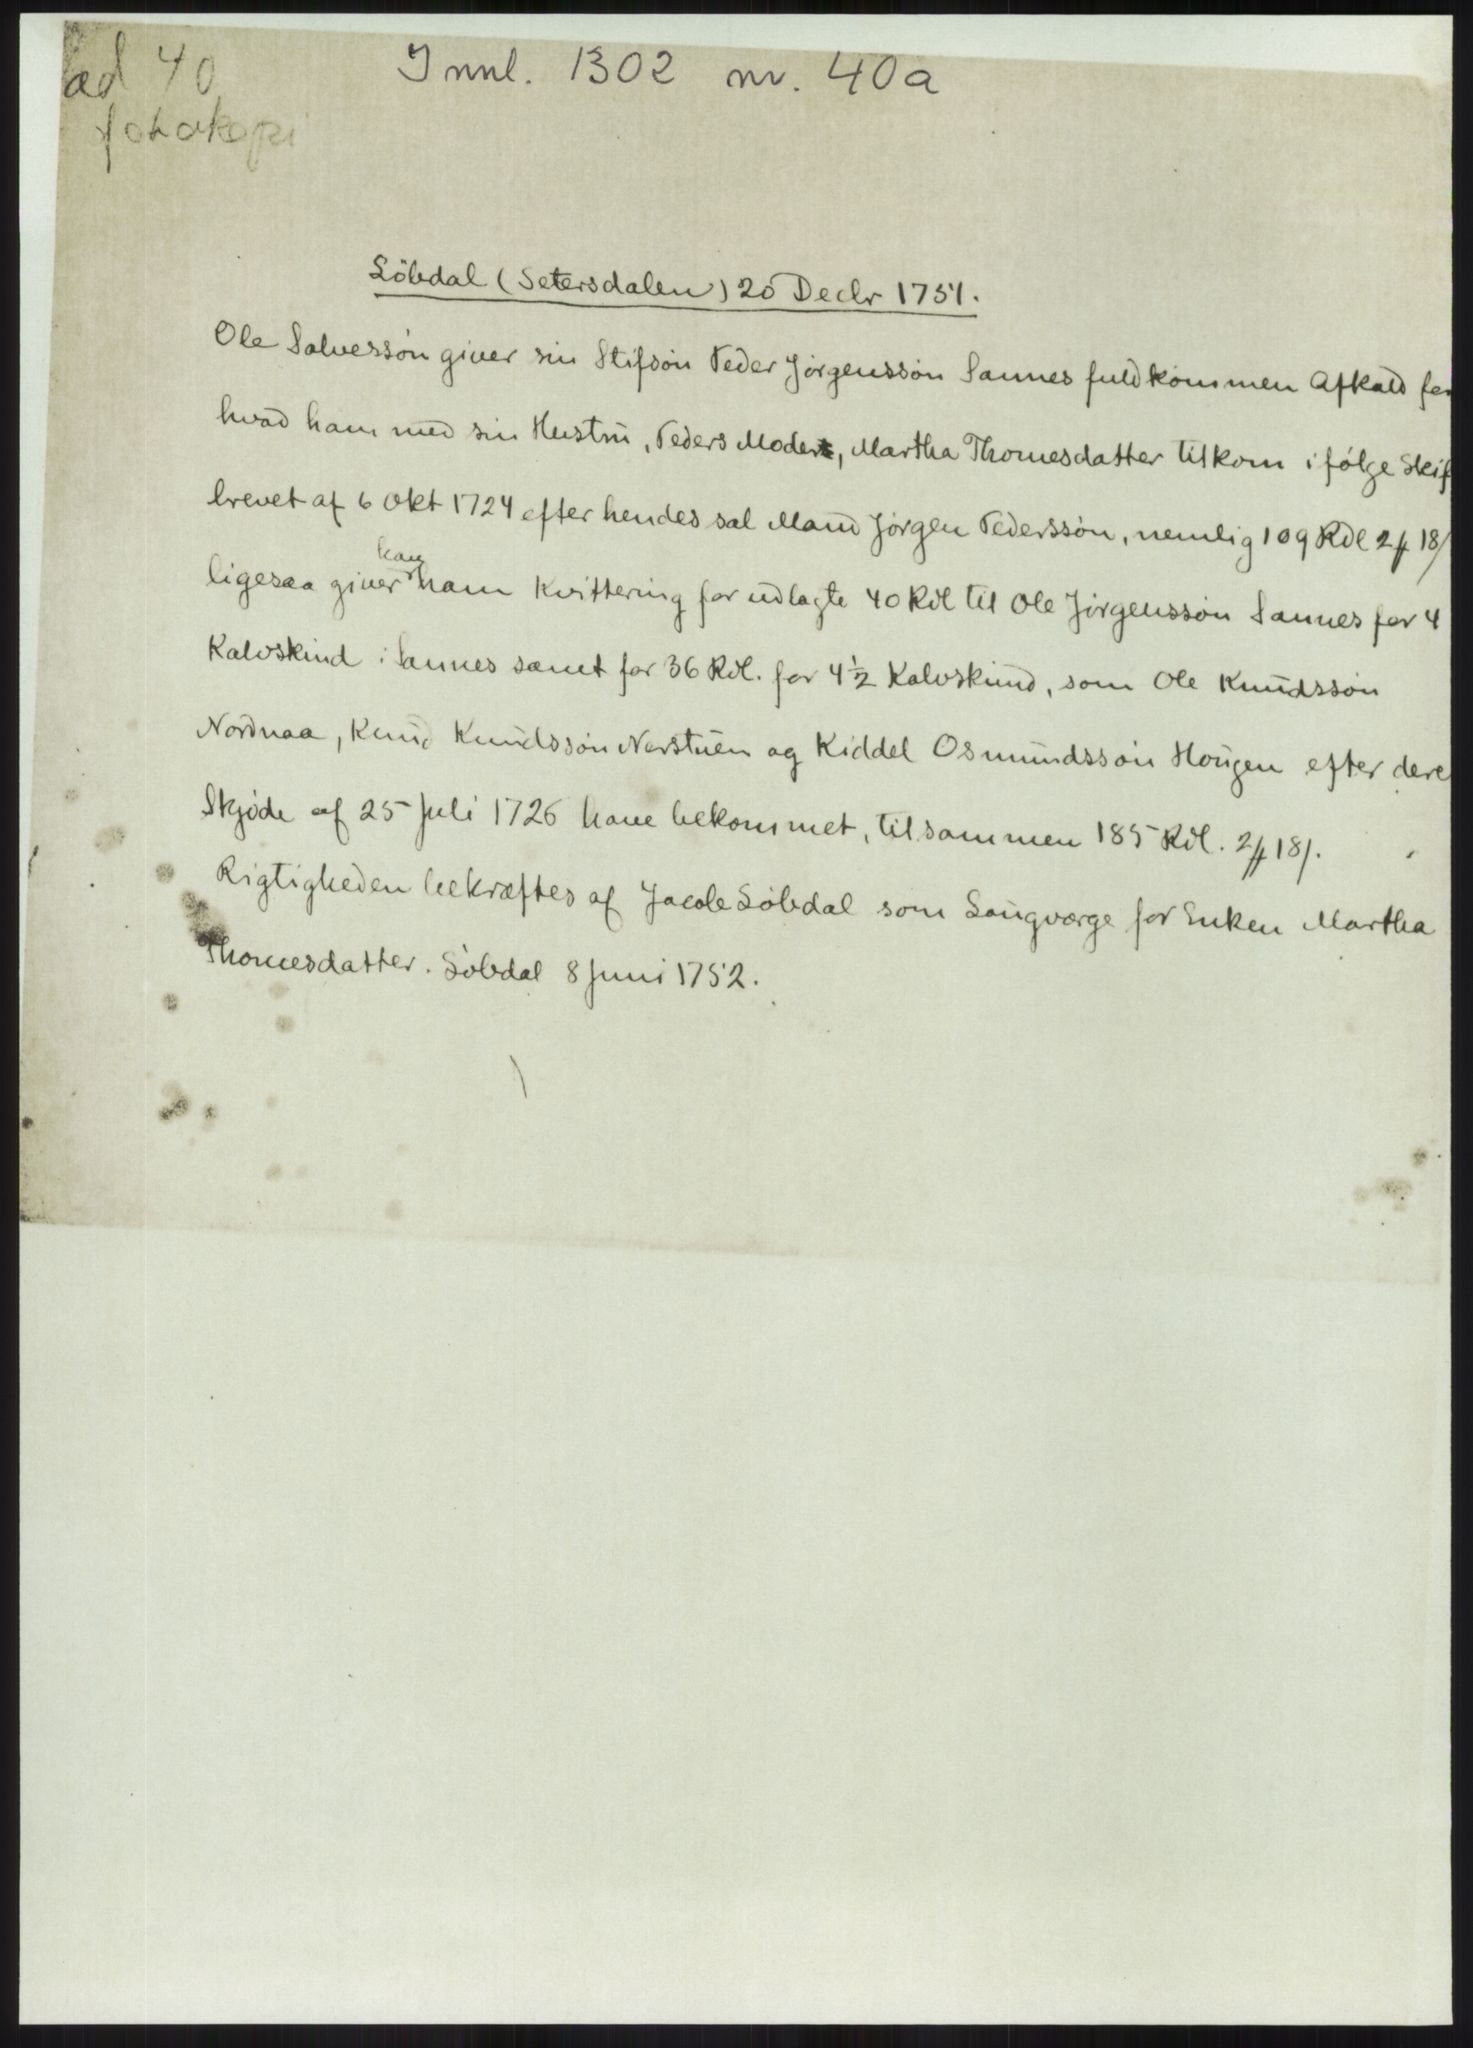 ad 40
Innl. 1302 nr. 40a
fotokopi
Löbdal (Setersdalen) 20 Decbr 1751.
Ole Salvessøn giver sin Stifsøn Peder Jørgenssøn Sannes fuldkommen Afkald for
hvad ham med sin Hustru, Peders Moder, Martha Thomesdatter tilkom ifølge Skif
brevet af 6 Okt 1724 efter hendes sal Mand Jørgen Pederssøn, nemlig 109 Rdl 2 18/
ligesaa giver han ham Kvittering for udlagte 40 Rdl til Ole Jørgenssøn Sannes for 4
Kalvskind i Sannes samt for 36 Rdl. for 4½ Kalvskind, som Ole Knudssøn
Nordnaa, Knud Knudssøn Nerstuen og Kiddel Osmundssøn Hougen efter dere
Skjøde af 25 Juli 1726 have bekommet, tilsammen 185 Rdl. 2 18/.
Rigtigheden bekræftes af Jacob Løbdal som Laugværge for Enken Martha
Thomesdatter. Løbdal 8 Juni 1752.